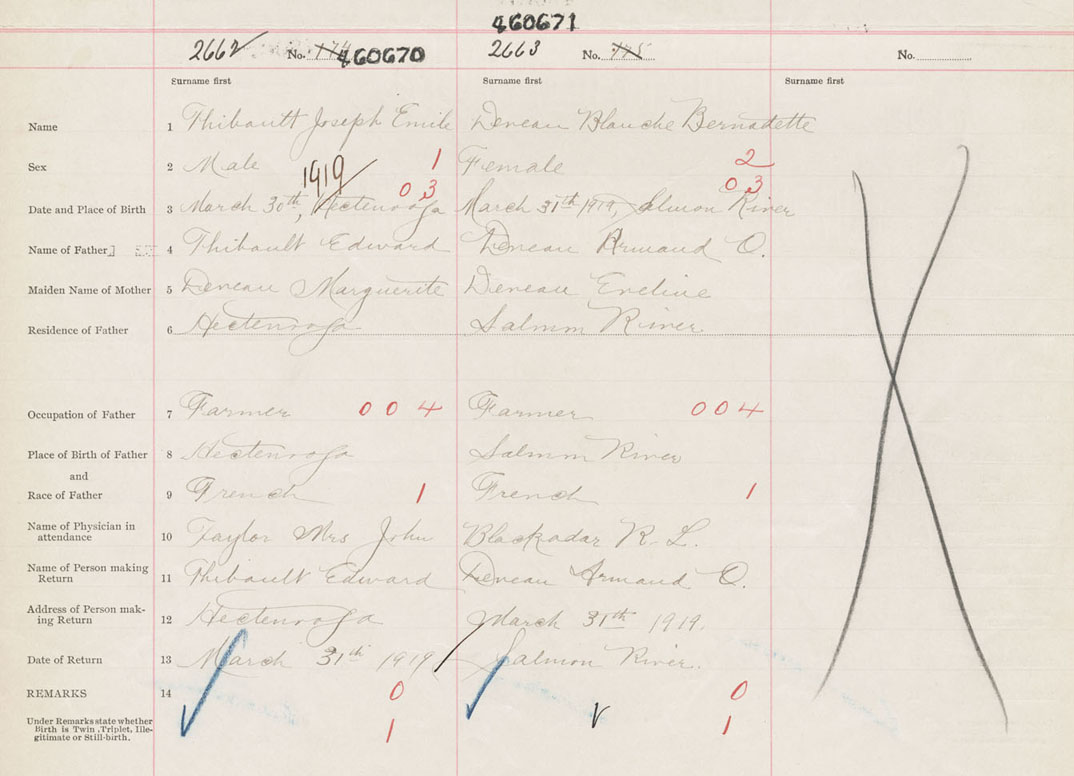 460671
2662 No. 460670 2663 No. No.
Surname first Surname first Surname first
Name 1 Thibault Joseph Emile Deveau Blanche Bernadette
Sex 2 Male 1 Female 2
1919 03 03
Date and Place of Birth 3 March 30th, Hectenooga March 31th 1919, Salmon River
Name of Father 4 Thibault Edward Deveau Armand O.
Maiden Name of Mother 5 Deveau Marguerite Deveau Eveline
Residence of Father 6 Hectenooga Salmon River.
Occupation of Father 7 Farmer 004 Farmer 004
Place of Birth of Father 8 Hectenooga Salmon River
and
Race of Father 9 French 1 French 1
Name of Physician in
attendance 10 Taylor Mrs John Blackadar R. L.
Name of Person making
Return 11 Thibault Edward Deveau Armand O.
Address of Person mak-
ing Return 12 Hectenooga March 31th 1919.
Date of Return 13 March 31th 1919 Salmon River.
REMARKS 14 0 0
Under Remarks state whether
Birth is Twin, Triplet, Ille-
gitimate or Still-birth. 1 1